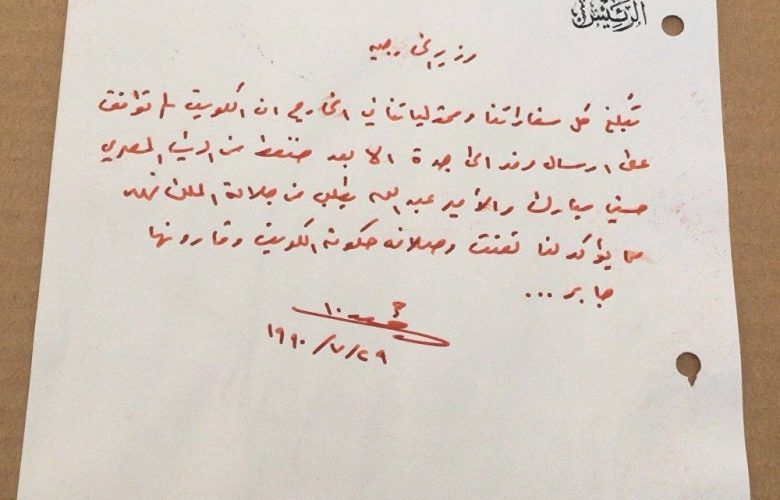 الرئيس
وزير الخارجيه
تبلغ كل سفاراتنا وممثلياتنا في الخارج ان الكويت لم توافق
على ارسال وفد الى جدة الا بعد ضغط من الرئيس المصري
حسني مبارك والأمير عبد الله بطلب من جلالة الملك فهد
مما يؤكد لنا تعنت وصلافه حكومة الكويت وقارونها
جابر ...
١٩٩٠/٧/٢٩